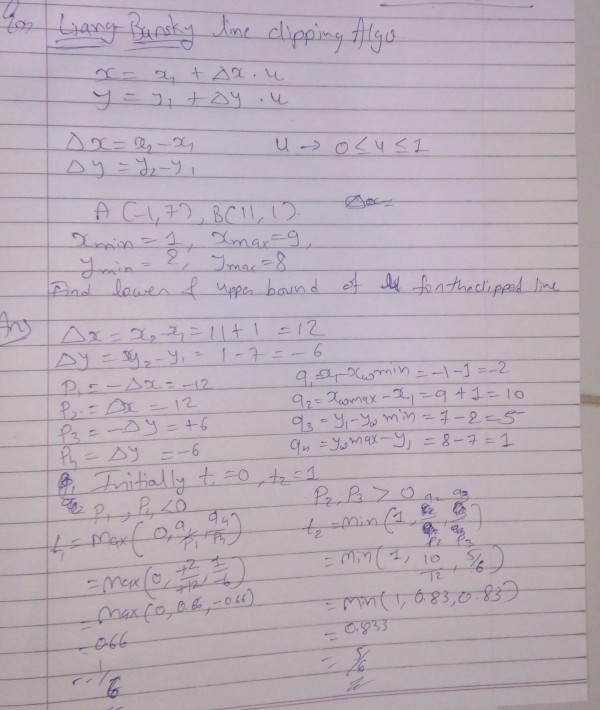 Qn) Liang Barsky line clipping Algo
x = x₁ + Δx . u
y = y₁ + Δy . u
Δx = x₂ - x₁ u → 0 ≤ u ≤ 1
Δy = y₂ - y₁
A (-1, 7), B(11, 1).
xmin = 1, xmax = 9,
ymin = 2, ymax = 8
Find lower & upper bound of for the clipped line
Ans) Δx = x₂ - x₁ = 11 + 1 = 12
Δy = y₂ - y₁ = 1 - 7 = -6
P₁ = -Δx = -12 q₁ = x₁ - xwmin = -1 -1 = -2
P₂ = Δx = 12 q₂ = xwmax - x₁ = 9 + 1 = 10
P₃ = -Δy = +6 q₃ = y₁ - yw min = 7 - 2 = 5
P₄ = Δy = -6 q₄ = yw max - y₁ = 8 - 7 = 1
Initially t₁ = 0, t₂ = 1
P₁, P₄ < 0 P₂, P₃ > 0
t₁ = max(0, q₁/P₁, q₄/P₄) t₂ = min(1, q₂/P₂, q₃/P₃)
= max(0, -2/-12, 1/-6) = min(1, 10/12, 5/6)
= max(0, 0.66, -0.66) = min(1, 0.83, 0.83)
= 0.66 = 0.833
= 1/6 = 5/6